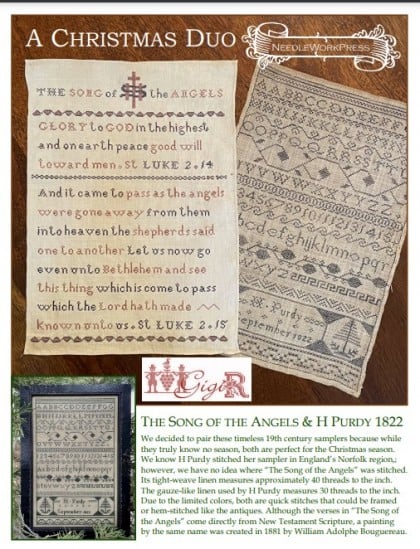 A CHRISTMAS DUO
NEEDLEWORKPRESS
THE SONG of the ANGELS
GLORY to GOD in the highest
and on earth peace good will
toward men. St LUKE 2.14
And it came to pass as the angels
were gone away from them
into heaven the shepherds said
one to another Let us now go
even unto Bethlehem and see
this thing which is come to pass
which the Lord hath made
known unto us. St LUKE 2.15
H. Purdy
September 1822
GigiR
THE SONG OF THE ANGELS & H PURDY 1822
We decided to pair these timeless 19th century samplers because while
they truly know no season, both are perfect for the Christmas season.
We know H Purdy stitched her sampler in England's Norfolk region,;
however, we have no idea where "The Song of the Angels" was stitched.
Its tight-weave linen measures approximately 40 threads to the inch.
The gauze-like linen used by H Purdy measures 30 threads to the inch.
Due to the limited colors, both are quick stitches that could be framed
or hem-stitched like the antiques. Although the verses in "The Song of
the Angels" come directly from New Testament Scripture, a painting
by the same name was created in 1881 by William Adolphe Bouguereau.